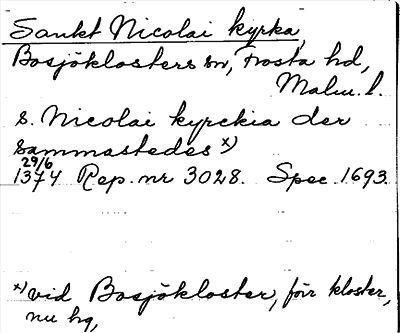 Sankt Nicolai kyrka,
Bosjöklosters sn, Frosta hd,
Malm. l.
s. Nicolai kyrckia der
sammastedes x)
29/6
1374 Rep. nr 3028. Spec. 1693.
x) vid Bosjökloster, förr kloster,
nu hg,